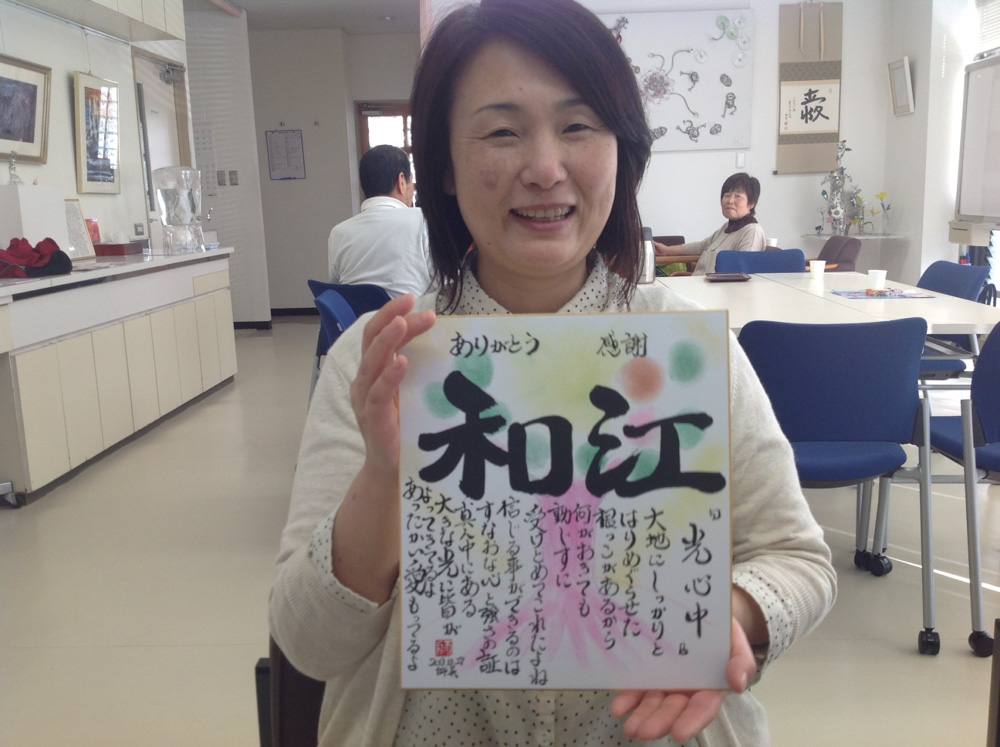 ありがとう 感謝
和江
『光心中』
大地にしっかりと
はりめぐらせた
根っこがあるから
何がおきても
動じずに
受けとめてこれたよね
信じる事ができるのは
すなおな心と強さの証
真ん中にある
大きな光に皆が
よってきて
あったかい愛もってるよ